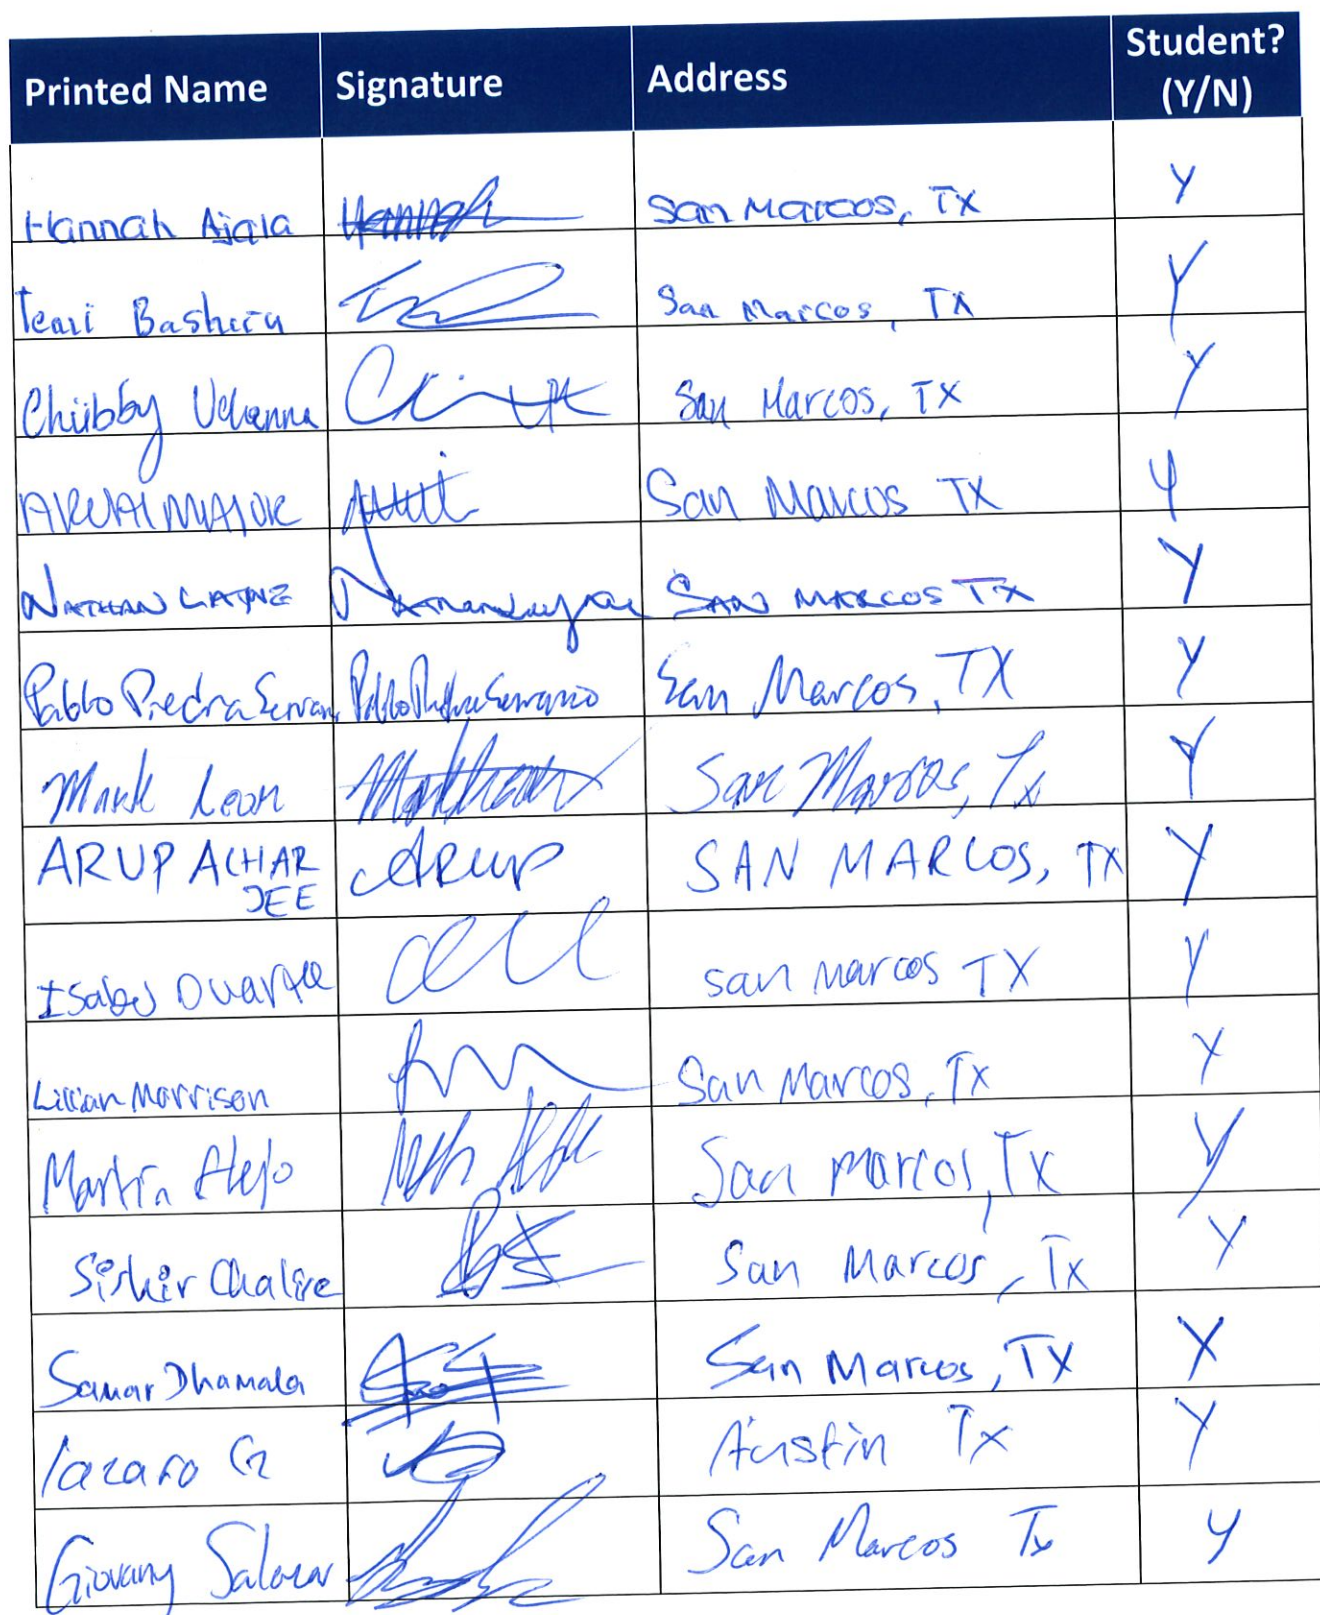 Printed Name Signature Address Student? (Y/N)
Hannah Ajala Hannah San Marcos, TX Y
Temi Bashiru San Marcos, TX Y
Chiibby Uchenna San Marcos, TX Y
San Marcos TX Y
NATHAN LAYNE SAN MARCOS TX Y
Pablo Piedra Serrano Pablo Piedra Serrano San Marcos, TX Y
Mark Leon San Marcos, Tx Y
ARUP ACHAR
JEE Arup SAN MARCOS, TX Y
Isabel Duarte san marcos TX Y
Lillian Morrison San Marcos, Tx Y
Martin Alejo San marcos, Tx Y
Sishir Chalise San Marcos, Tx Y
Samar Dhamala San Marcos, TX Y
lazaro G Austin Tx Y
Giovany Salazar San Marcos Tx Y